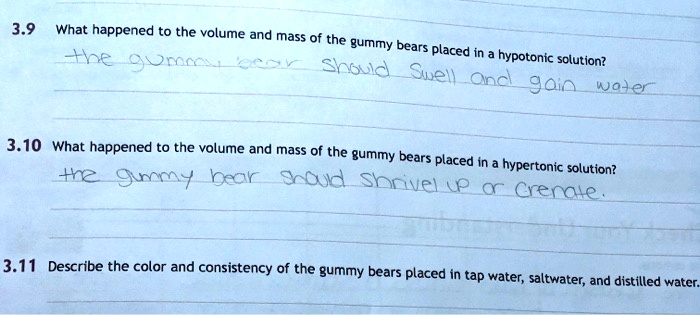 3.9 What happened to the volume and mass of the gummy bears placed in a hypotonic solution?
the gummy bear should swell and gain water
3.10 What happened to the volume and mass of the gummy bears placed in a hypertonic solution?
the gummy bear shoud shrivel up or crenate.
3.11 Describe the color and consistency of the gummy bears placed in tap water, saltwater, and distilled water.